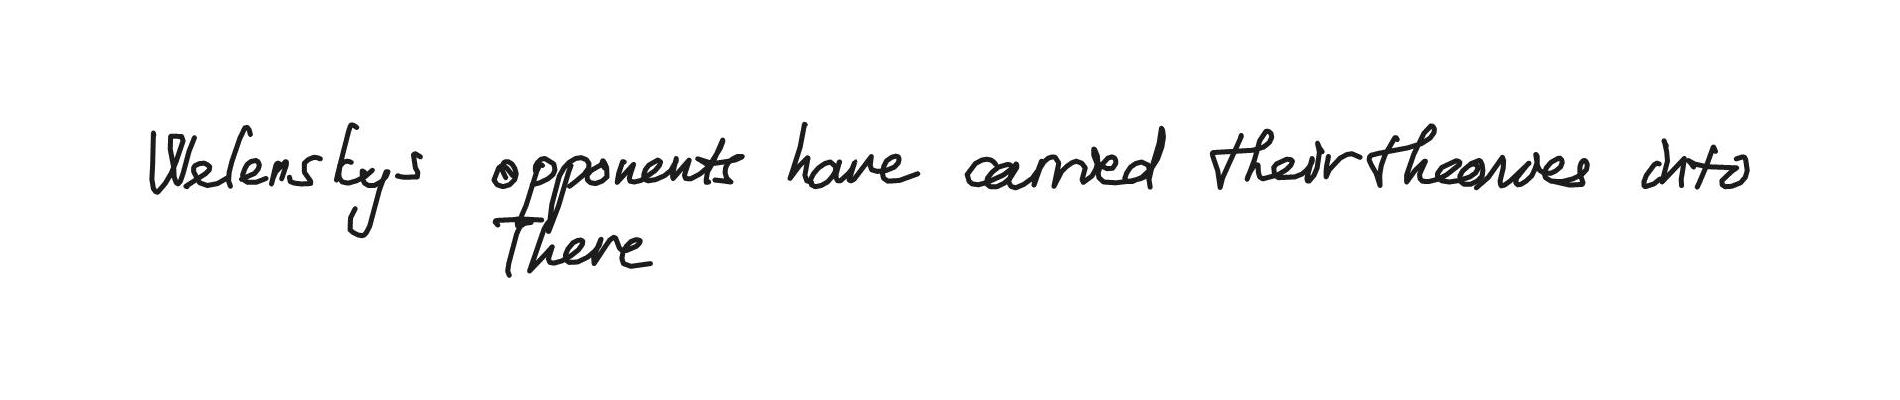 Welenskys opponents have carried their theories into
There